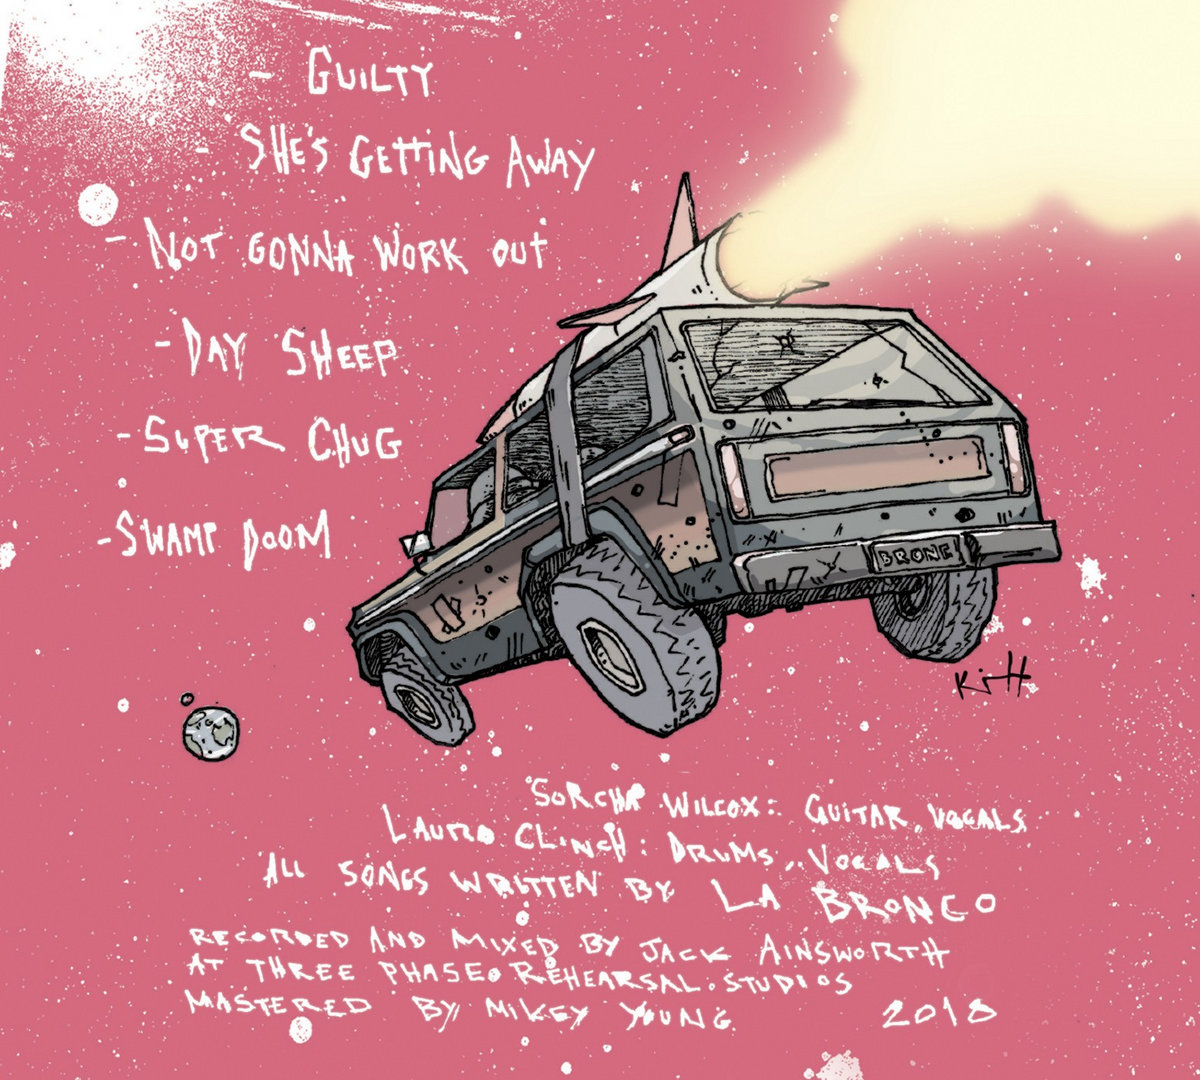 - GUILTY
- SHE'S GETTING AWAY
- NOT GONNA WORK OUT
- DAY SHEEP
- SUPER CHUG
- SWAMP DOOM
BRONC
SORCHA WILCOX: GUITAR, VOCALS
LAURO CLINCH: DRUMS, VOCALS
ALL SONGS WRITTEN BY LA BRONCO
RECORDED AND MIXED BY JACK AINSWORTH
AT THREE PHASE REHEARSAL STUDIOS
MASTERED BY MIKEY YOUNG 2018